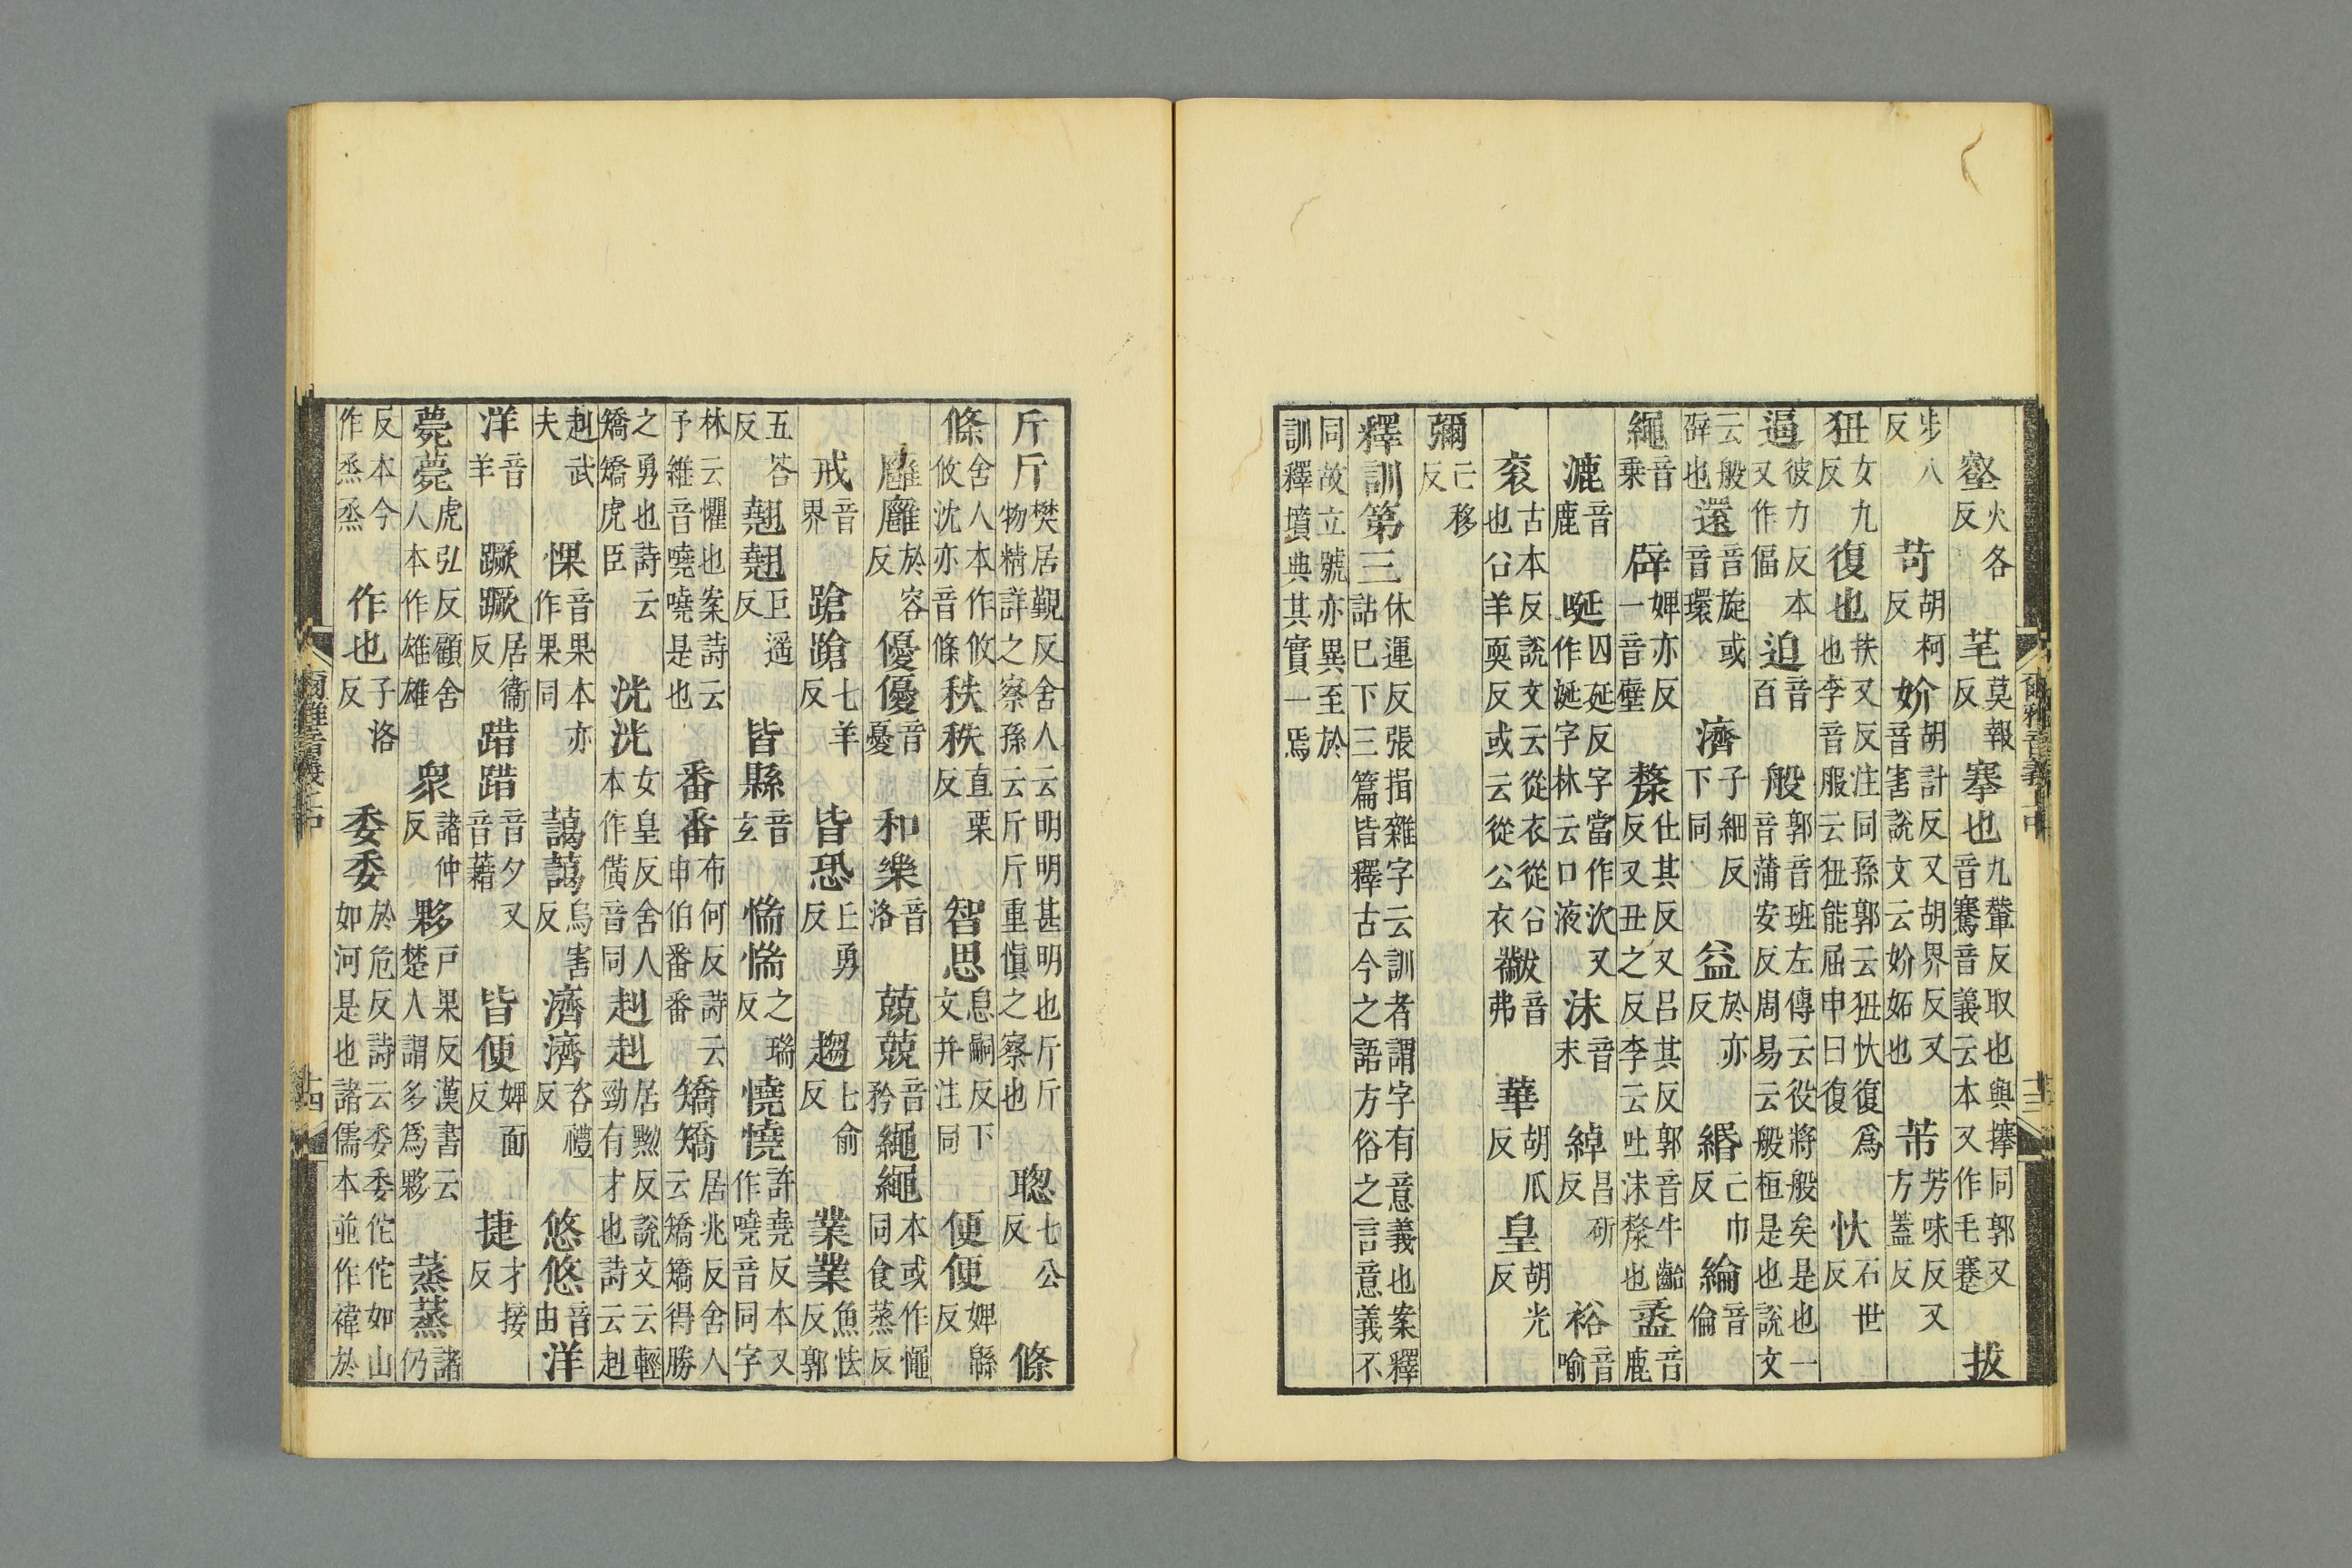 爾雅音義上中 十三
壑火各反 芼莫報反 搴也九輦反取也與攓同郭又音騫音義云本又作毛蹇 拔
步八反 苛胡柯反 妎胡計反又胡界反又音害說文云妎妬也 芾芳味反又方蓋反
狃女九反 復也扶又反注同孫郭云狃忕復爲也李音服云狃能屈申曰復 忕石世反
逼彼力反本又作偪 迫音百 般郭音班左傳云役將般矣是也一音蒲安反周易云般桓是也說文
云般辟也 還音旋或音環 濟子細反下同 益於亦反 緡亡巾反 綸音倫
繩音乗 辟婢亦反一音壁 漦仕其反又呂其反郭音牛齝反又丑之反李云吐沫漦也 盝音鹿
漉音鹿 唌囚延反字當作㳄又作涎字林云口液 沫音末 綽昌斫反 裕音喻
衮古本反說文云從衣從㕣也㕣羊耎反或云從公衣 黻音弗 華胡瓜反 皇胡光反
彌亡移反
釋訓第三休運反張揖雜字云訓者謂字有意義也案釋詁巳下三篇皆釋古今之語方俗之言意義不
同故立號亦異至於訓釋墳典其實一焉
斤斤樊居覲反舍人云明明甚明也斤斤物精詳之察孫云斤斤重愼之察也 聦七公反 條
條舍人本作攸攸沈亦音條 秩秩直栗反 智思息嗣反下文幷注同 便便婢緜反
廱廱於容反 優優音憂 和樂音洛 兢兢音矜 繩繩本或作憴同食蒸反
戒音界 蹌蹌七羊反 皆恐丘勇反 趨七俞反 業業魚怯反郭
五荅反 翹翹巨遥反 皆縣音玄 惴惴之瑞反 憢憢許堯反本又作嘵音同字
林云懼也案詩云予維音嘵嘵是也 番番布何反詩云申伯番番 矯矯居兆反舍人云矯矯得勝
之勇也詩云矯矯虎臣 洸洸女皇反舍人本作僙音同 赳赳居黝反說文云輕勁有才也詩云赳
赳武夫 惈音果本亦作果同 藹藹烏害反 濟濟咨禮反 悠悠音由 洋
洋音羊 蹶蹶居衞反 踖踖音夕又音藉 皆便婢面反 捷才接反
薨薨虎弘反顧舍人本作雄雄 衆諸仲反 夥戸果反漢書云楚人謂多爲夥 蒸蒸諸仍
反本今作烝烝 作也子洛反 委委於危反詩云委委佗佗如山如河是也諸儒本並作禕於
爾雅音義上中 十四